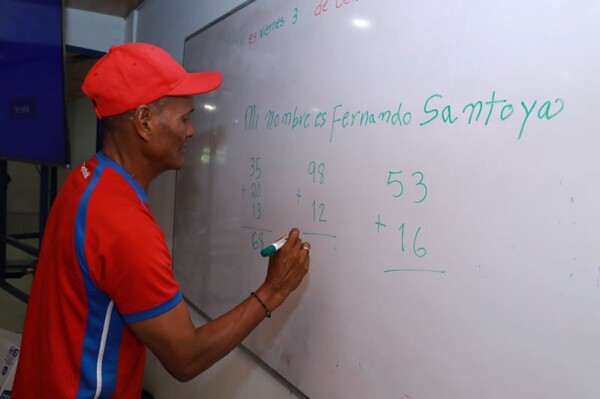 es viernes 3 de
Mi nombre es Fernando Santoya
35
+ 20
13
68
98
+ 12
53
+ 16